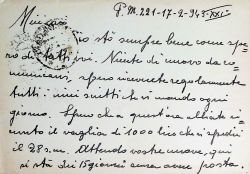 P.M. 221-17-2-943-XXI
sto sempre bene come spe
ro di tutti voi. Niente di nuovo da co
municarvi, spero riceverete regolarmente
tutti i miei scritti che vi mando ogni
giorno. Spero che a quest'ora abbiate ri
cevuto il vaglia di 1000 lire che vi spedii
il 28 s.m. Attendo vostre nuove, qui
si sta dei 15 giorni senza avere posta.